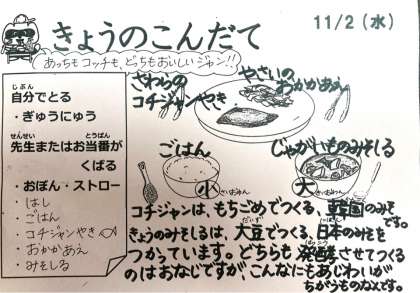 きょうのこんだて
11/2(水)
あっちもコッチも、どっちもおいしいジャン!!
じぶん
自分でとる
・ぎゅうにゅう
せんせい とうばん
先生またはお当番が
くばる
・おぼん・ストロー
・はし
・ごはん
・コチジャンやき
・おかかあえ
・みそしる
さわらの
コチジャンやき
やさいの
おかかあえ
ごはん
じゃがいものみそしる
小 さいおみん
大 さいおみん
コチジャンは、もちごめでつくる、韓国のみそ
です。
きょうのみそしるは、大豆でつくる、日本のみそを
つかっています。どちらも発酵させてつくる
のはおなじですが、こんなにもあじわいが
ちがうものなんです。